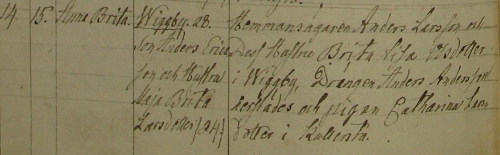 14. 15. Anna Brita. Wiggby. 28. Hemmansägaren Anders Larsson och
Son Anders Erics Dess Hustru Brita Lisa Olsdotter
son och Hustru i Wiggby, Drängen Anders Andersson
Maja Brita och pigan Catharina
Larsdotter (24) dotter i Kullersta.